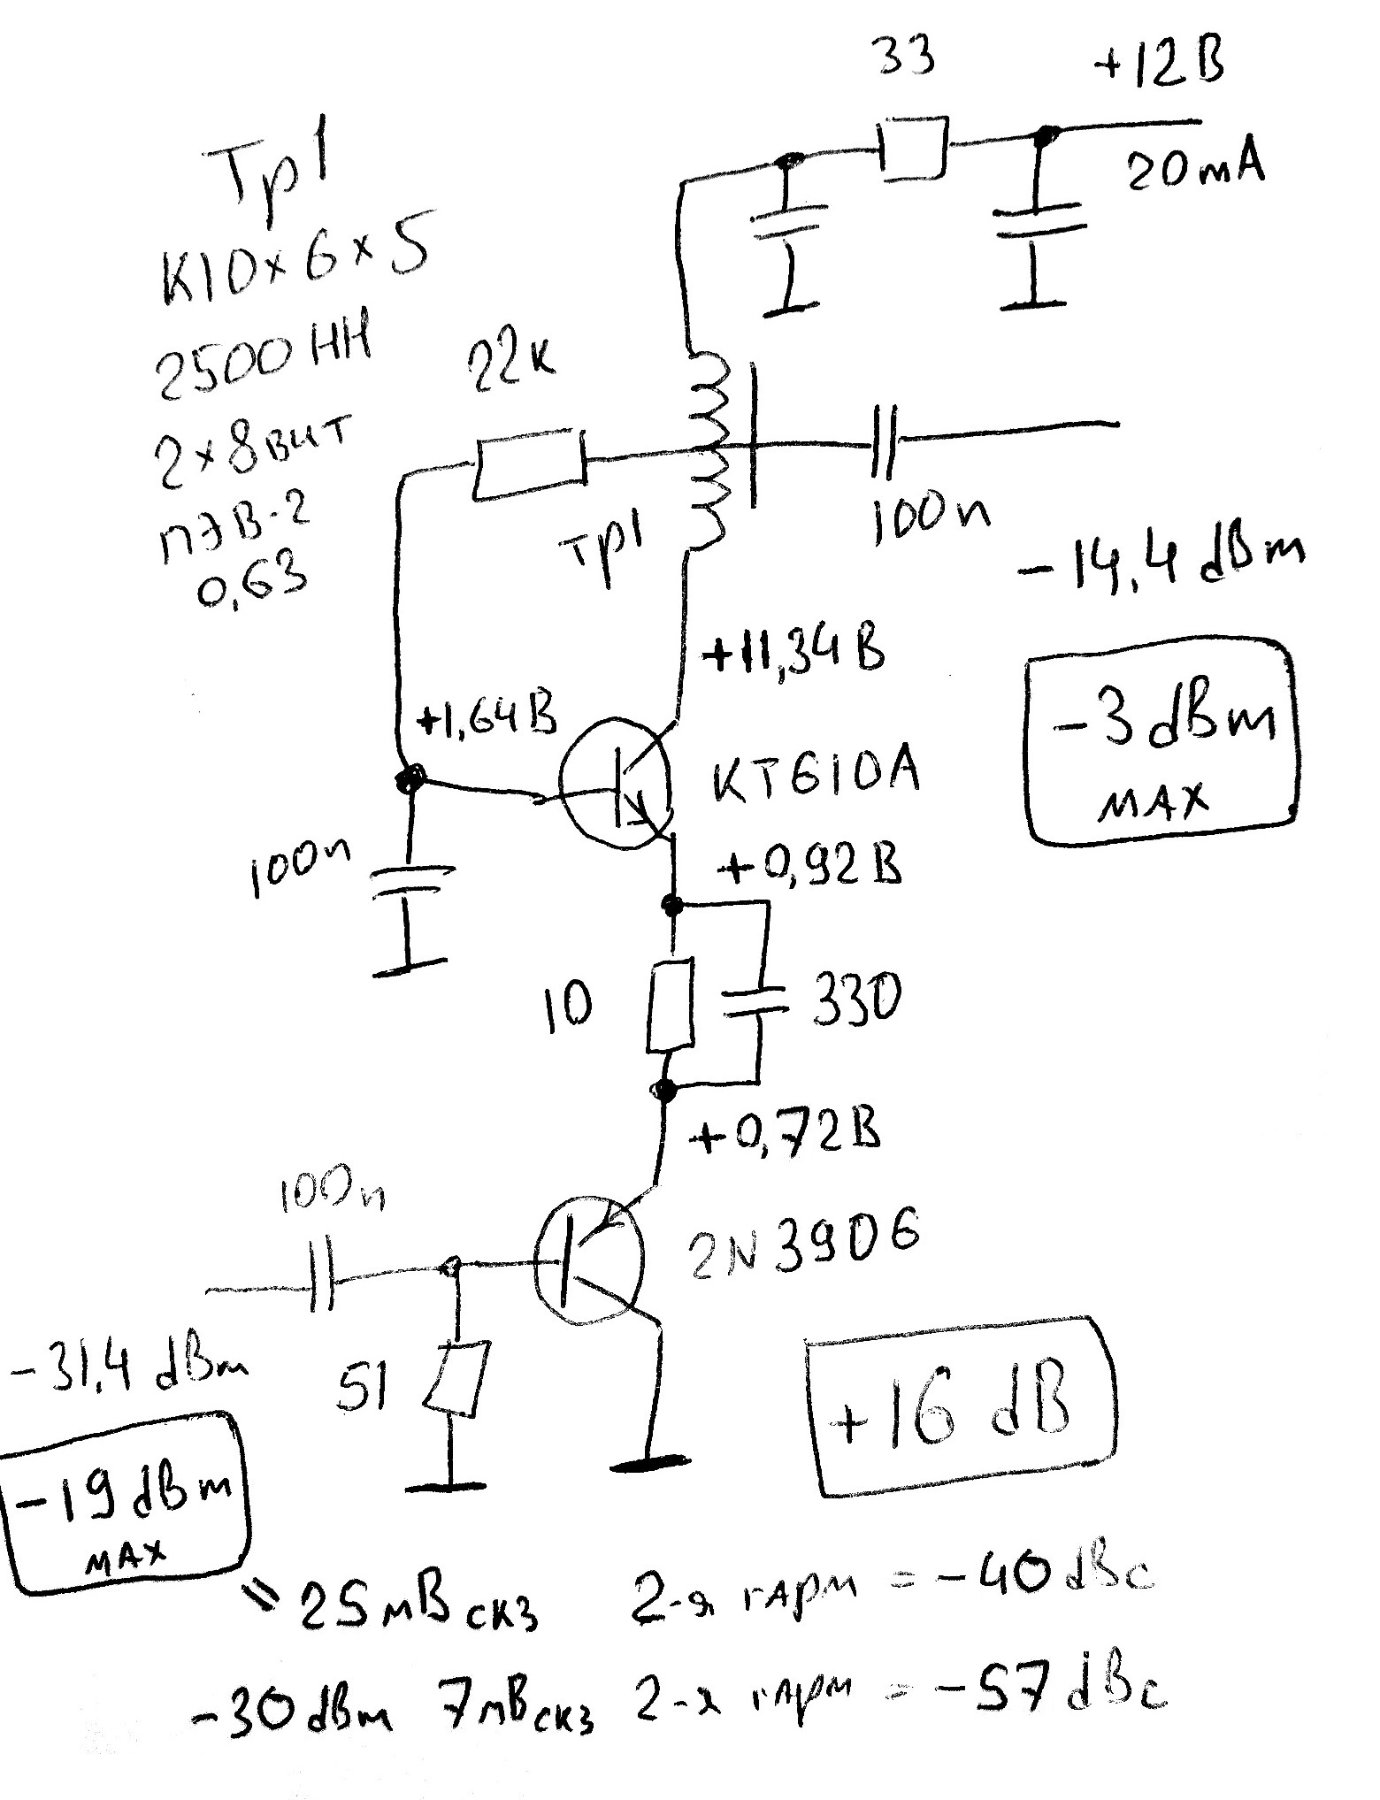 33
+12В
20mA
Тр1
К10×6×5
2500НН
2×8вит
ПЭВ-2
0,63
22к
Тр1
100n
-14,4 dBm
-3 dBm
MAX
+11,34В
+1,64В
КТ610А
+0,92В
100n
10
330
+0,72В
100n
2N3906
-31,4 dBm
51
+16 dB
-19 dBm
MAX
= 25мВскз 2-я гарм = -40 dBc
-30 dBm 7мВскз 2-я гарм = -57 dBc